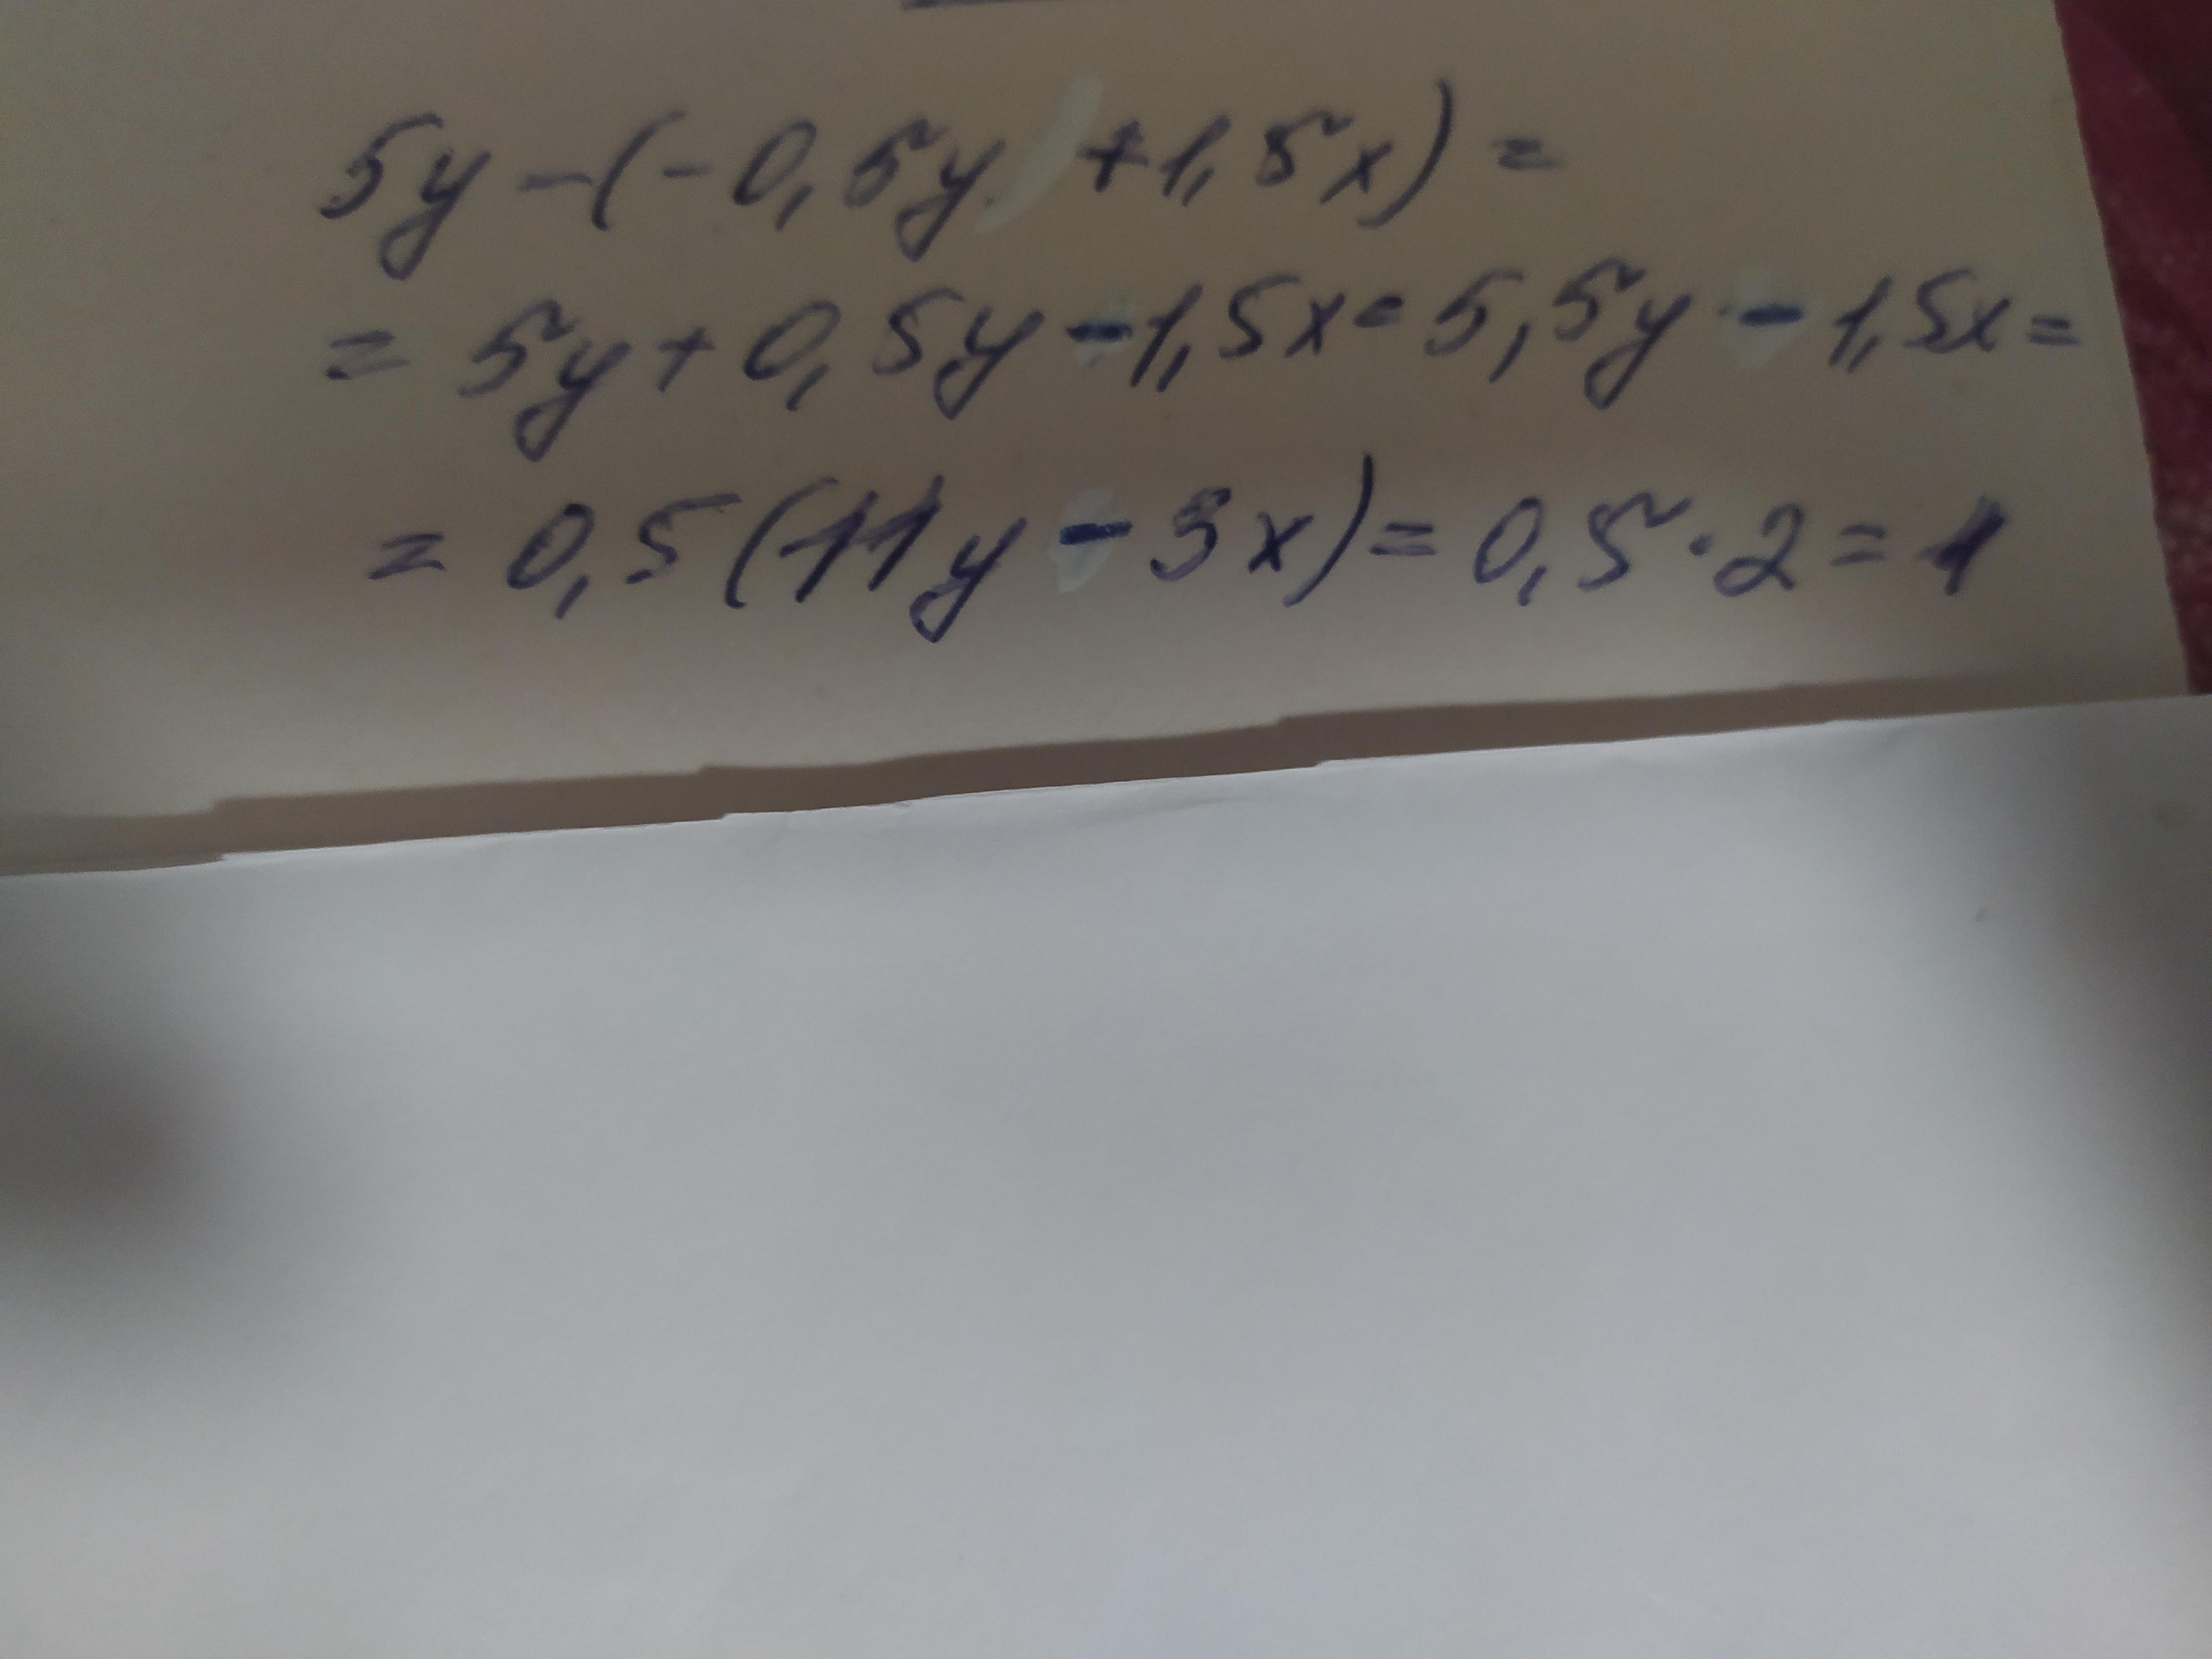 5y-(-0,5y+1,5x)=
=5y+0,5y-1,5x=5,5y-1,5x=
=0,5(11y-3x)=0,5·2=1